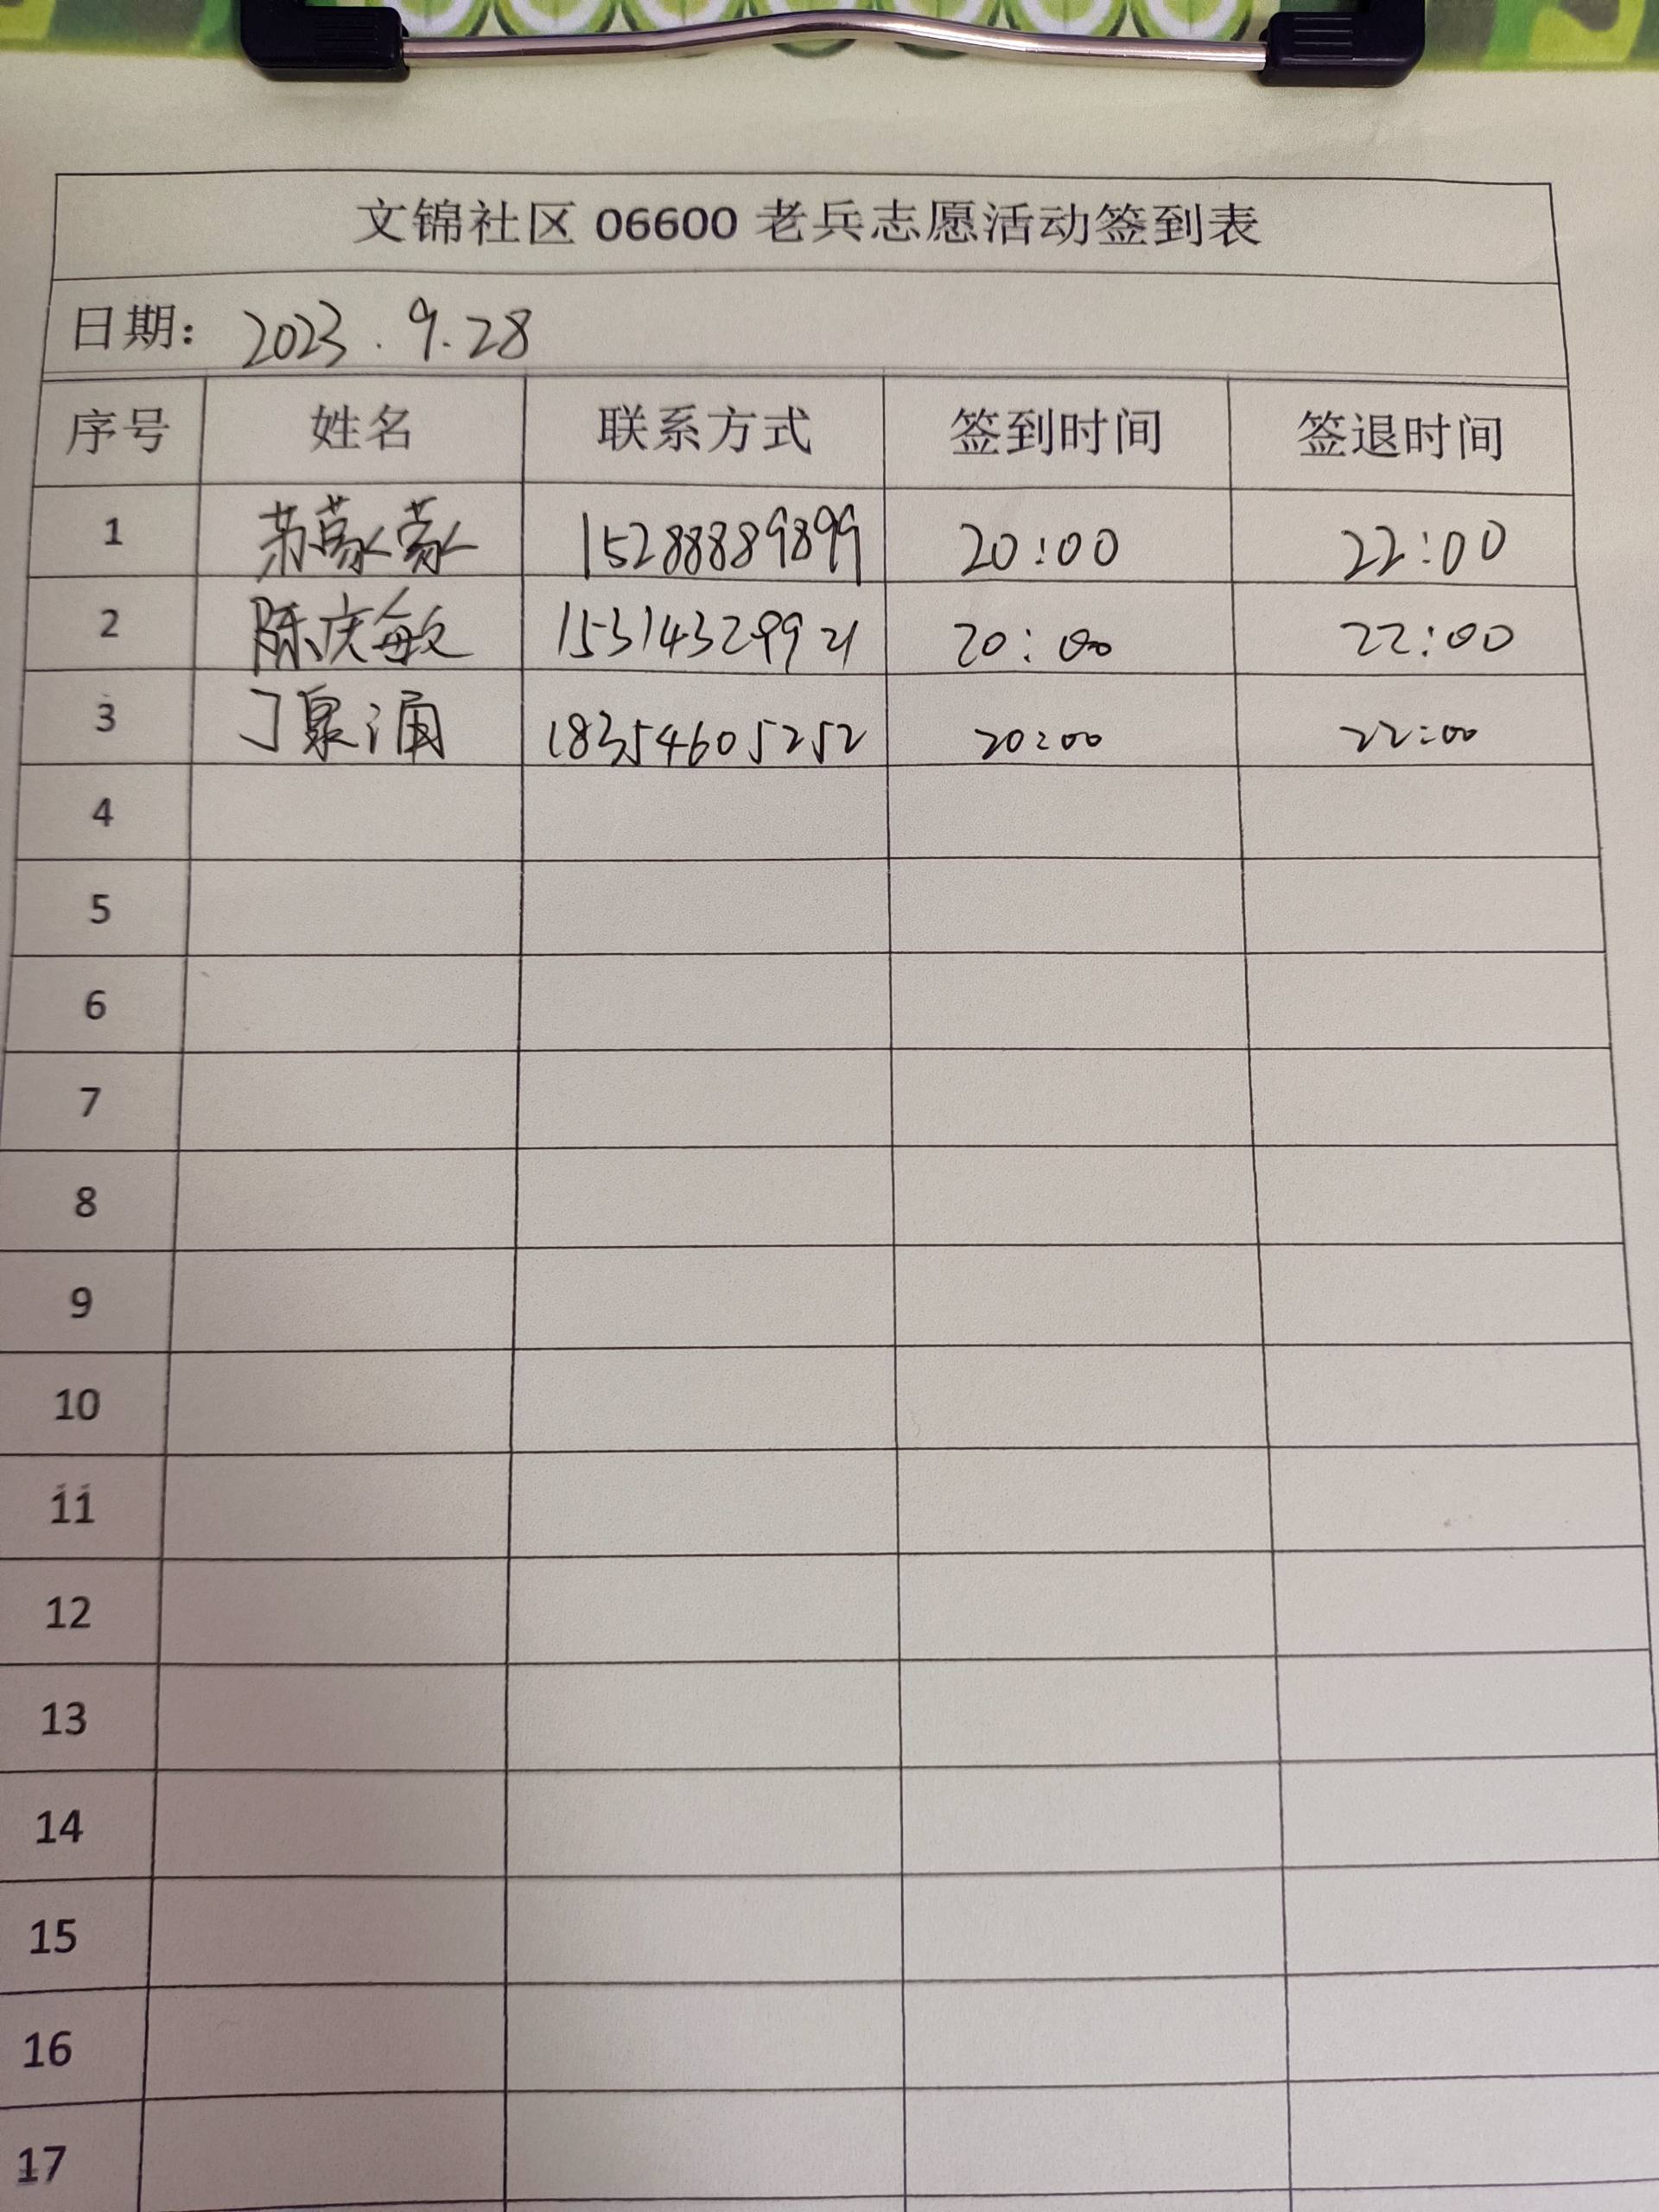 文锦社区 06600 老兵志愿活动签到表
日期: 2023.9.28
序号 姓名 联系方式 签到时间 签退时间
1 苏蒙蒙 15288889899 20:00 22:00
2 陈庆敏 15314329921 20:00 22:00
3 丁泉涌 18354605252 20:00 22:00
4
5
6
7
8
9
10
11
12
13
14
15
16
17